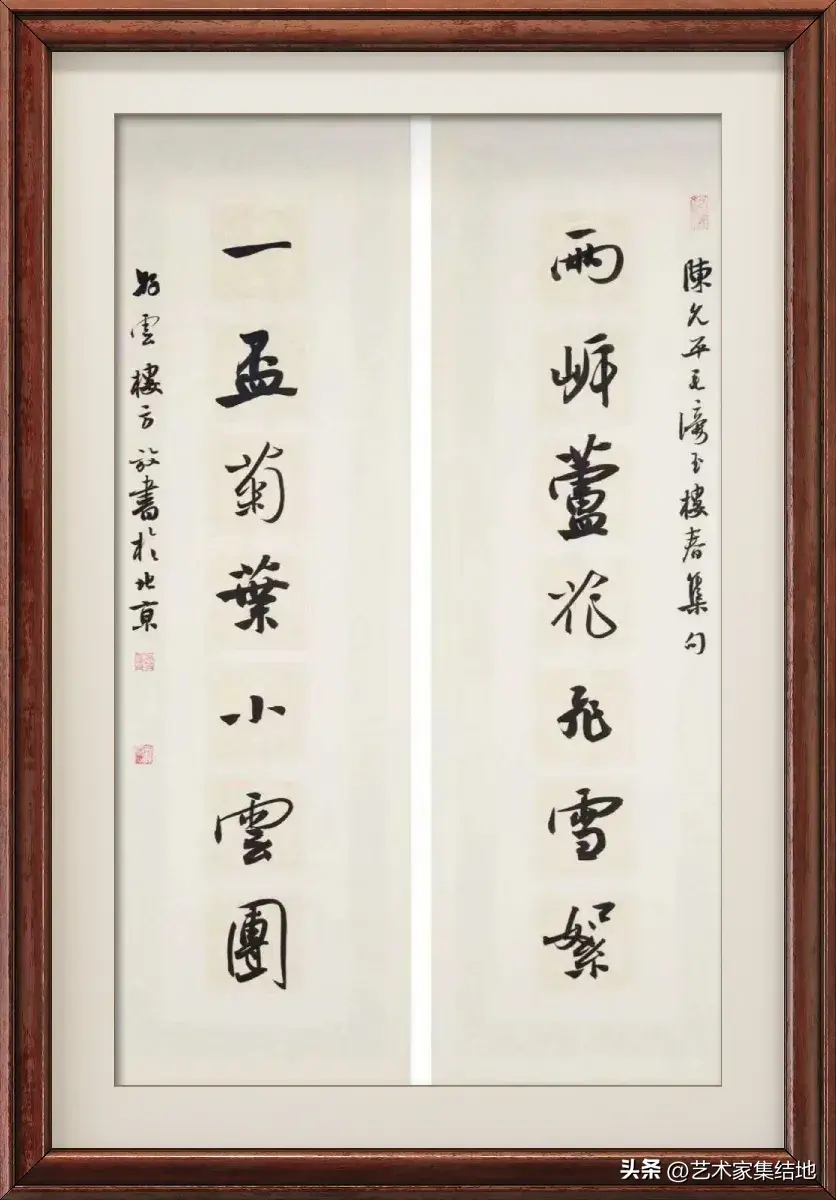 陳允平毛滂玉樓春集句
兩岸蘆花飛雪絮
一盃菊葉小雲團
雲樓方放書於北京
头条 @艺术家集结地